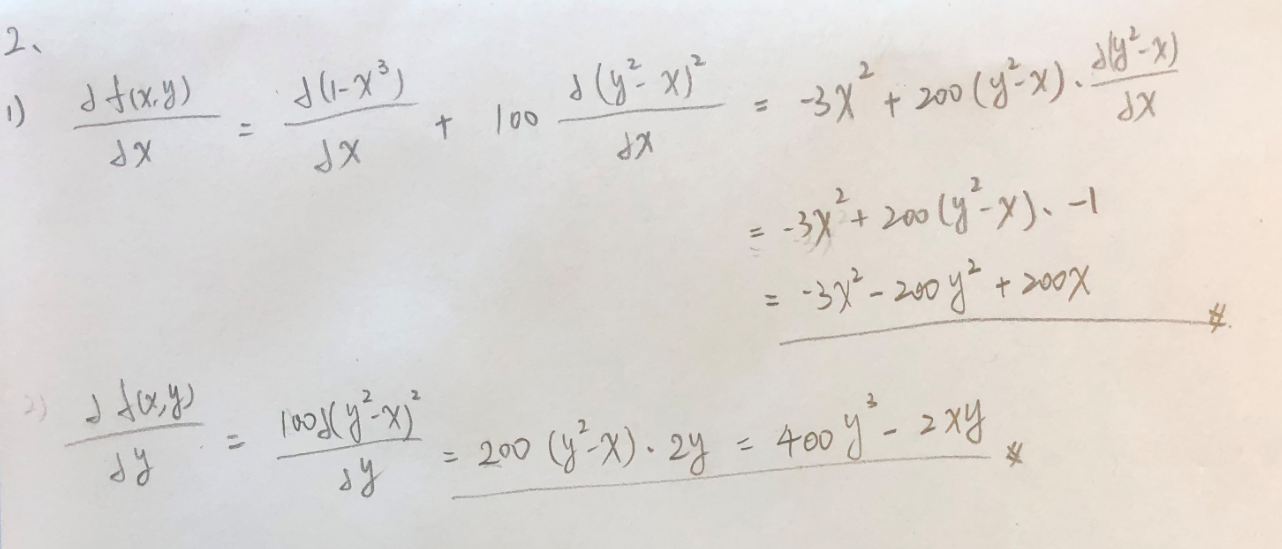 2、
1) ∂f(x,y)/∂x = ∂(1-x³)/∂x + 100 ∂(y²-x)²/∂x = -3x² + 200(y²-x)·∂(y²-x)/∂x
= -3x² + 200(y²-x)·-1
= -3x² - 200y² + 200x #
2) ∂f(x,y)/∂y = 100∂(y²-x)²/∂y = 200(y²-x)·2y = 400y³ - 2xy #